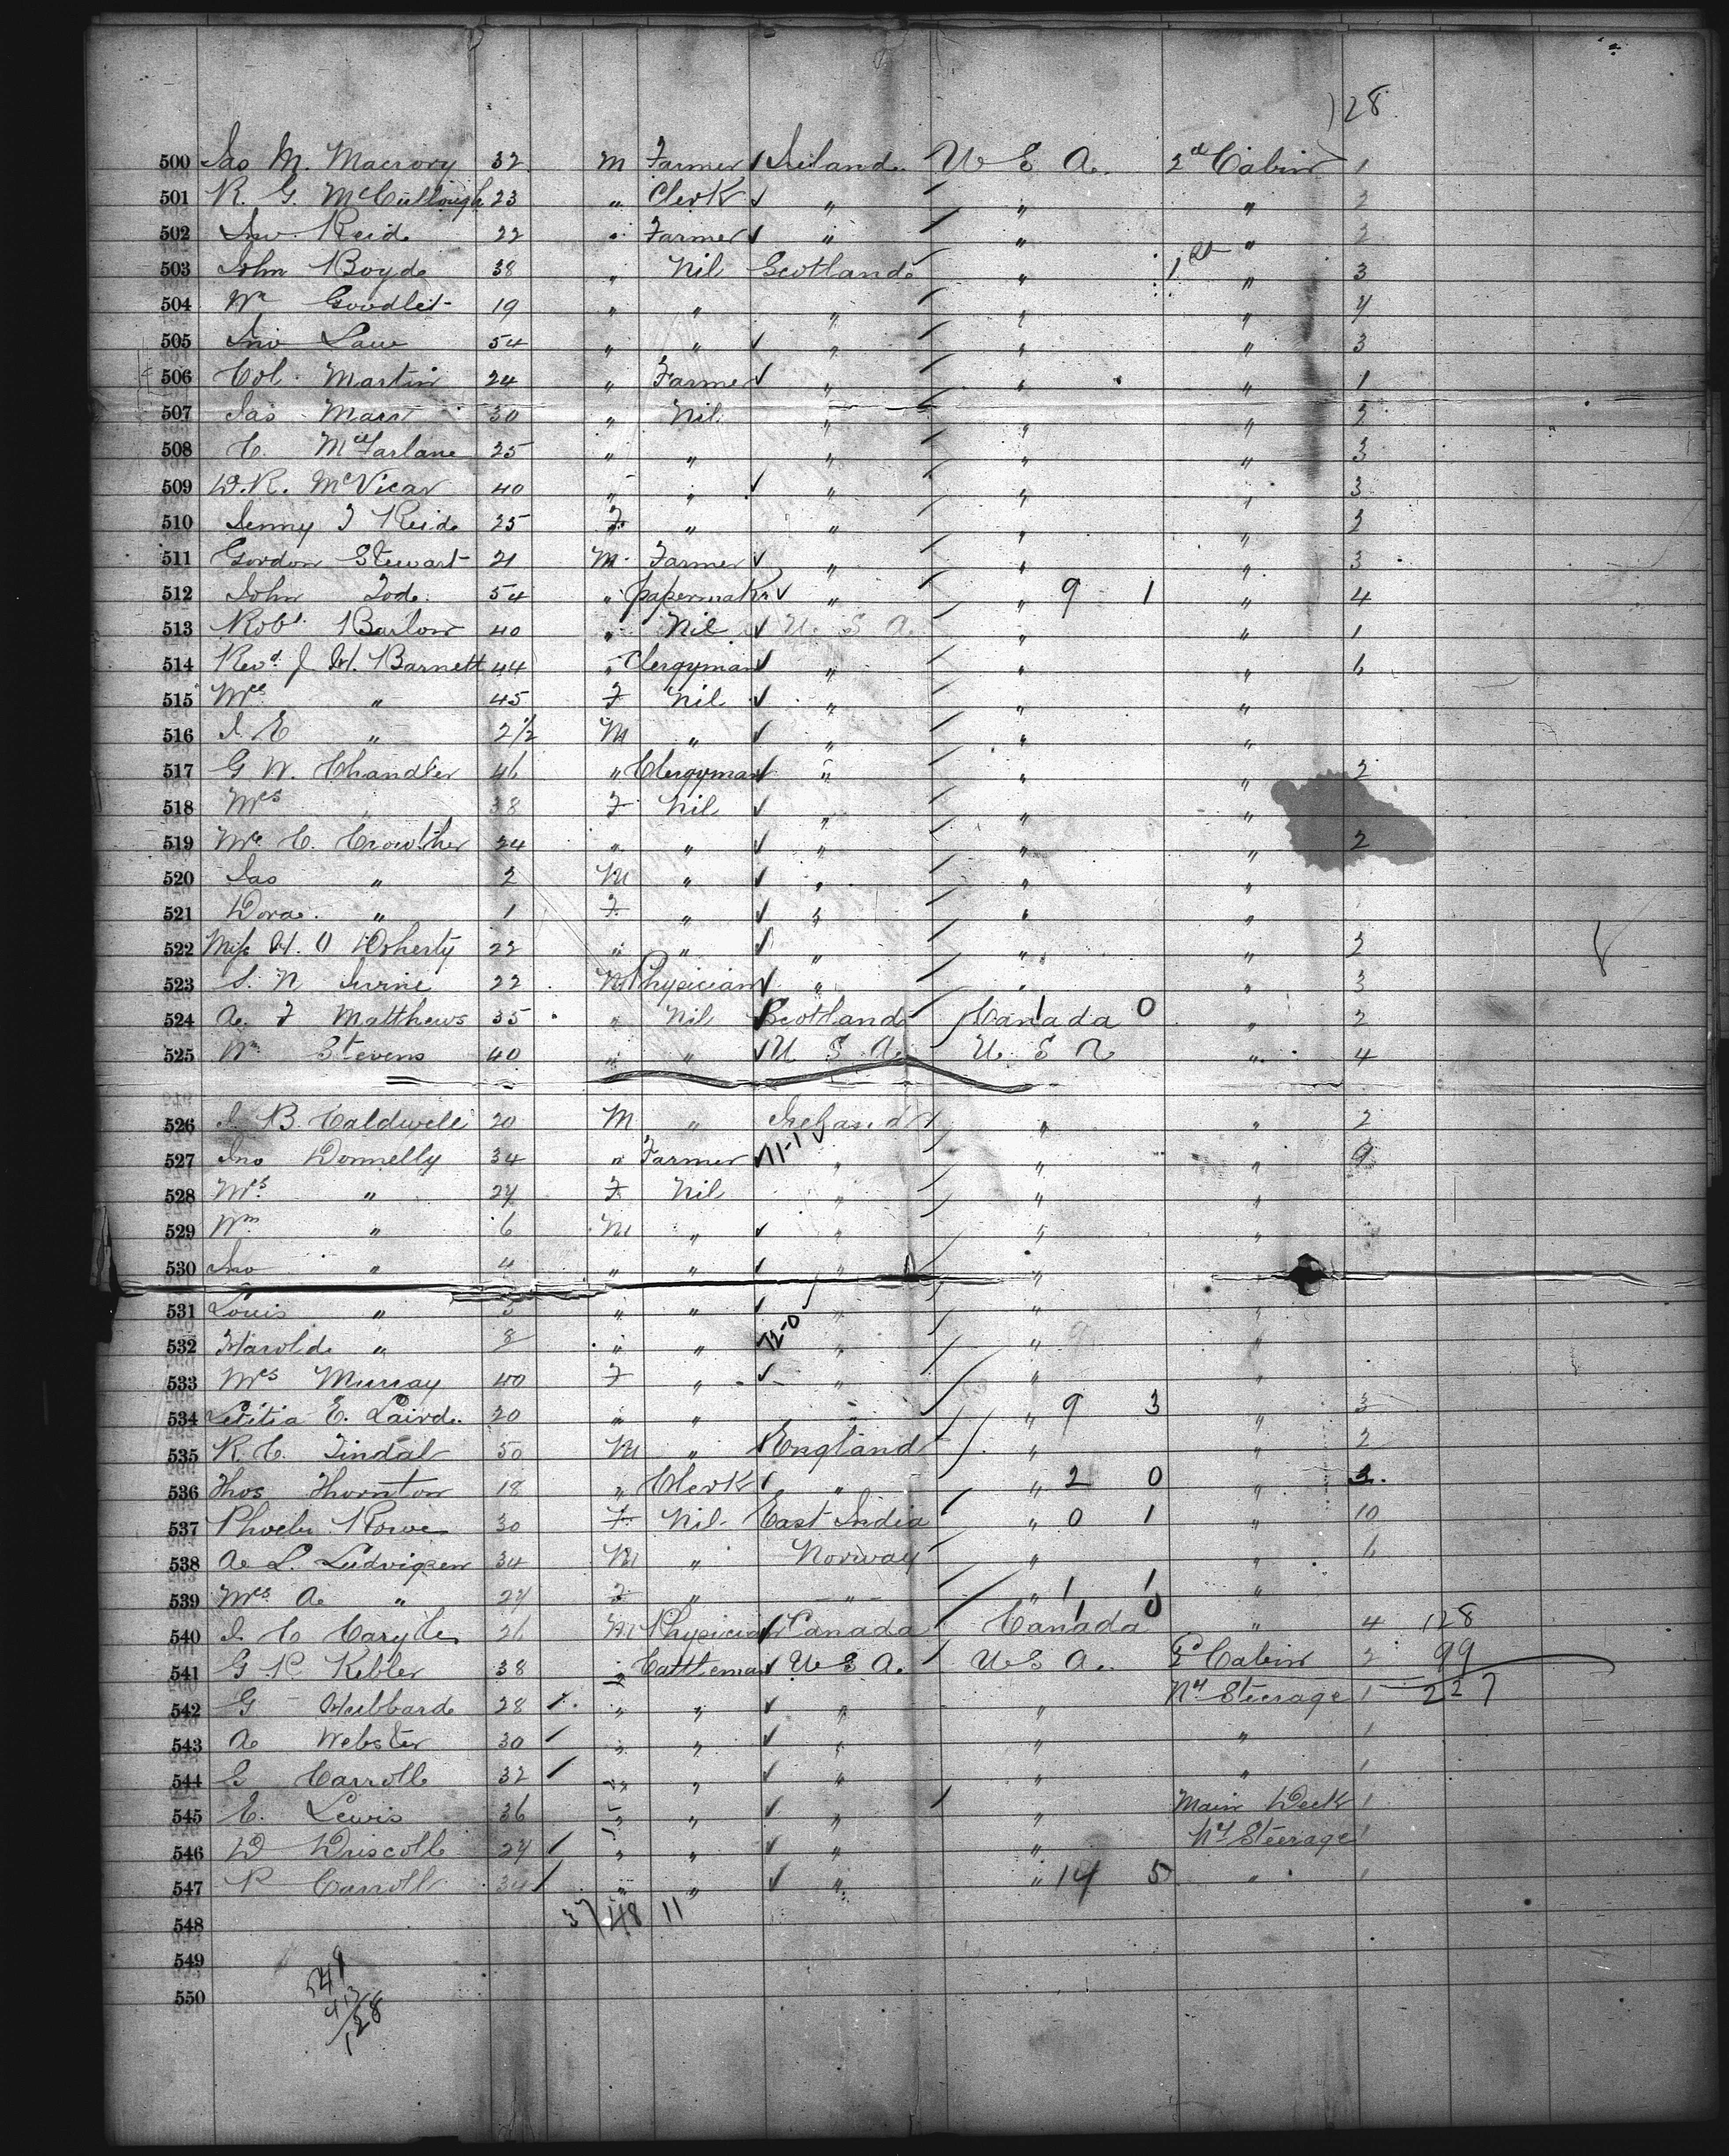 128
500 Jas M. Macrory 32 M Farmer Ireland U S A. 2nd Cabin 1
501 R. G. McCullough 23 " Clerk " " " 2
502 Jno Reid 22 " Farmer " " " 2
503 John Boyd 38 " Nil Scotland " 1st " 3
504 Wm Goodlet 19 " " " " " 4
505 Jno Law 54 " " " " " 3
506 Col. Martin 24 " Farmer " " " 1
507 Jas Marr 30 " Nil " " " 2
508 C. McFarlane 25 " " " " " 3
509 D. R. McVicar 40 " " " " " 3
510 Jenny J Reid 25 F " " " " 3
511 Gordon Stewart 21 M Farmer " " " 3
512 John Tod 54 " papermaker " " 9 1 " 4
513 Robt Barlow 40 " Nil U. S A. " " 1
514 Revd J H. Barnett 44 " Clergyman " " " 6
515 Mrs " 45 F Nil " " "
516 J. E " 2 1/2 M " " " "
517 G W. Chandler 46 " Clergyman " " " 2
518 Mrs " 38 F Nil " " "
519 Mrs C. Crowther 24 " " " " " 2
520 Jas " 2 M " " " "
521 Dora " 1 F " " " "
522 Miss H. O Doherty 22 " " " " " 2
523 S. N Irvine 22 M Physician " " " 3
524 A. F Matthews 35 " Nil Scotland Canada 1 0 " 2
525 Wm Stevens 40 " " U S A. U S A " 4
526 J. B. Caldwell 20 M " Ireland " " 2
527 Jno Donnelly 34 " Farmer 11-1 " " " 9
528 Mrs " 24 F Nil " " "
529 Wm " 6 M " " " "
530 Jno " 4 " " " " "
531 Louis " 3 " " " " "
532 Harold " 8 " " 12-0 " " 9 "
533 Mrs Murray 40 F " " " "
534 Letitia E. Laird 20 " " " " 9 3 " 3
535 R. C. Tindal 50 M " England " " 2
536 Thos Thornton 18 " Clerk " " 2 0 " 2
537 Phoebe Rowe 30 F Nil East India " 0 1 " 10
538 A. L. Ludvigsen 34 M " Norway " " 6
539 Mrs A " 24 F " " " 1 1 "
540 J. C Caryle 26 M Physician Canada Canada 1 0 " 4 128
541 G P. Kebler 38 " Cattleman U S A. U S A. 2d Cabin 2 99
542 G Hubbard 28 " " " " Nd Steerage 1 227
543 A Webster 30 " " " " " 1
544 G Carroll 32 " " " " " 1
545 E. Lewis 36 " " " " Main Deck 1
546 D Driscoll 24 " " " " Nd Steerage 1
547 P Carroll 34 " " " " 14 5 " 1
548 37 48 11
549
550